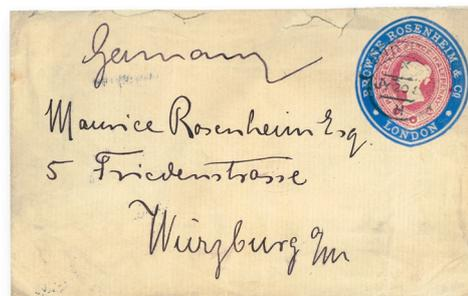 Germany
BROWNE ROSENHEIM & Co
LONDON
Maurice Rosenheim Esq.
5 Friedenstrasse
Würzburg